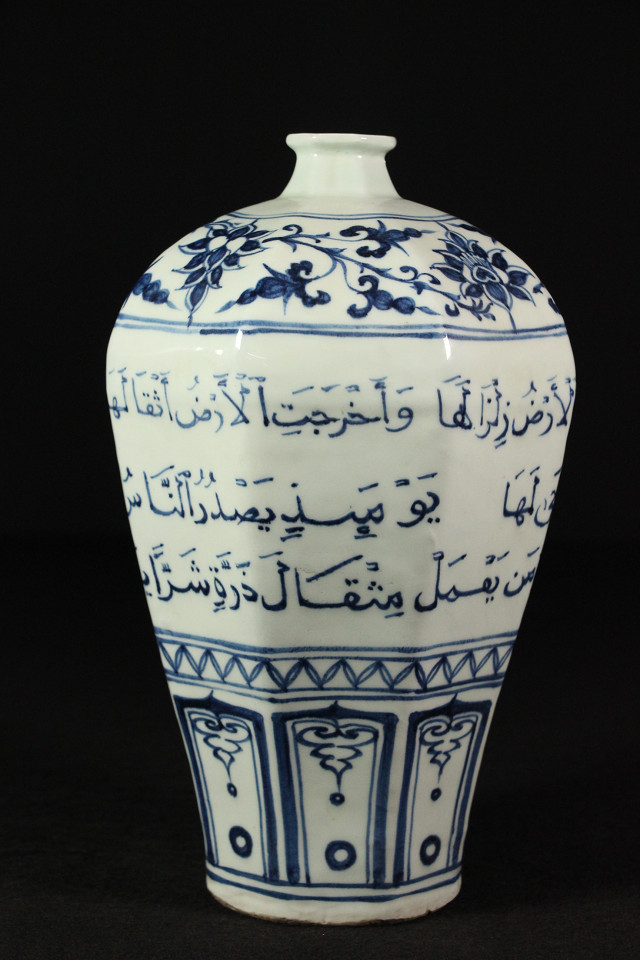 ٱلْأَرْضُ زِلْزَالَهَا وَأَخْرَجَتِ ٱلْأَرْضُ أَثْقَالَهَا
لَهَا يَوْمَئِذٍ يَصْدُرُ ٱلنَّاسُ
مَن يَعْمَلْ مِثْقَالَ ذَرَّةٍ شَرًّا